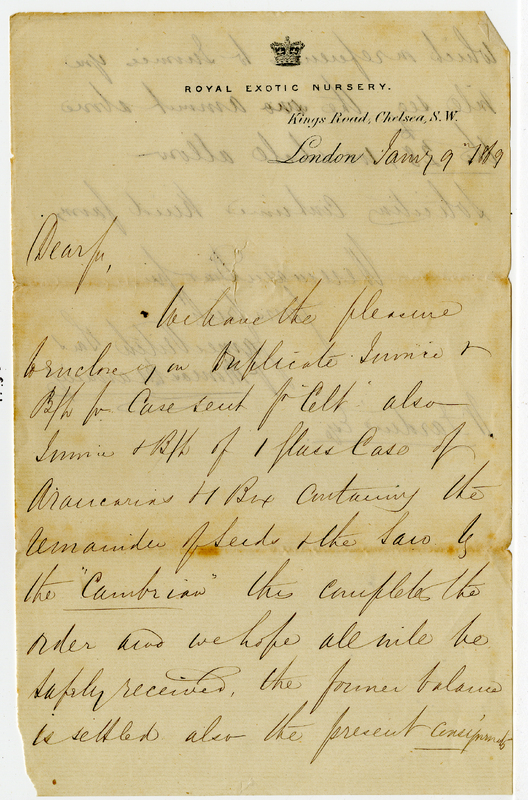 ROYAL EXOTIC NURSERY.
Kings Road, Chelsea, S.W.
London Jany 9 1869
Dear Sir,
We have the pleasure
to enclose you Duplicate Invoice &
B/L for Case sent pr "Celt" also
Invoice & B/L of 1 Glass Case of
Araucarias & 1 Box containing the
remainder of seeds & the Saw by
the "Cambrian" this completes the
order and we hope all will be
safely received, the former balance
is settled also the present consignment